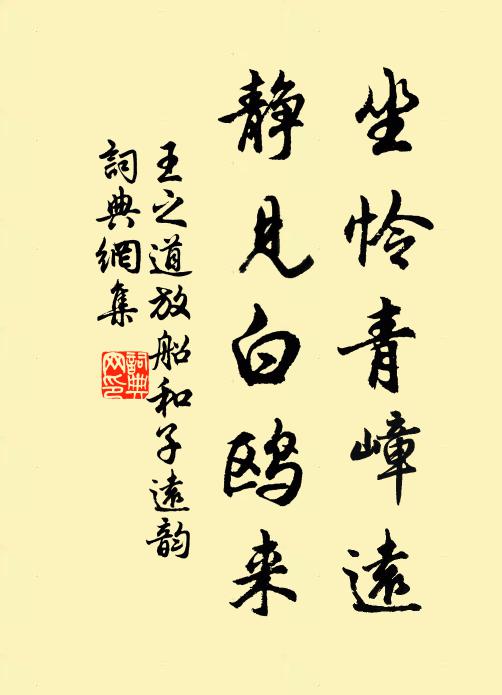 坐怜青嶂遠
静見白鸥来
王之道放船和子遠韵
詞典網集
詞典網印